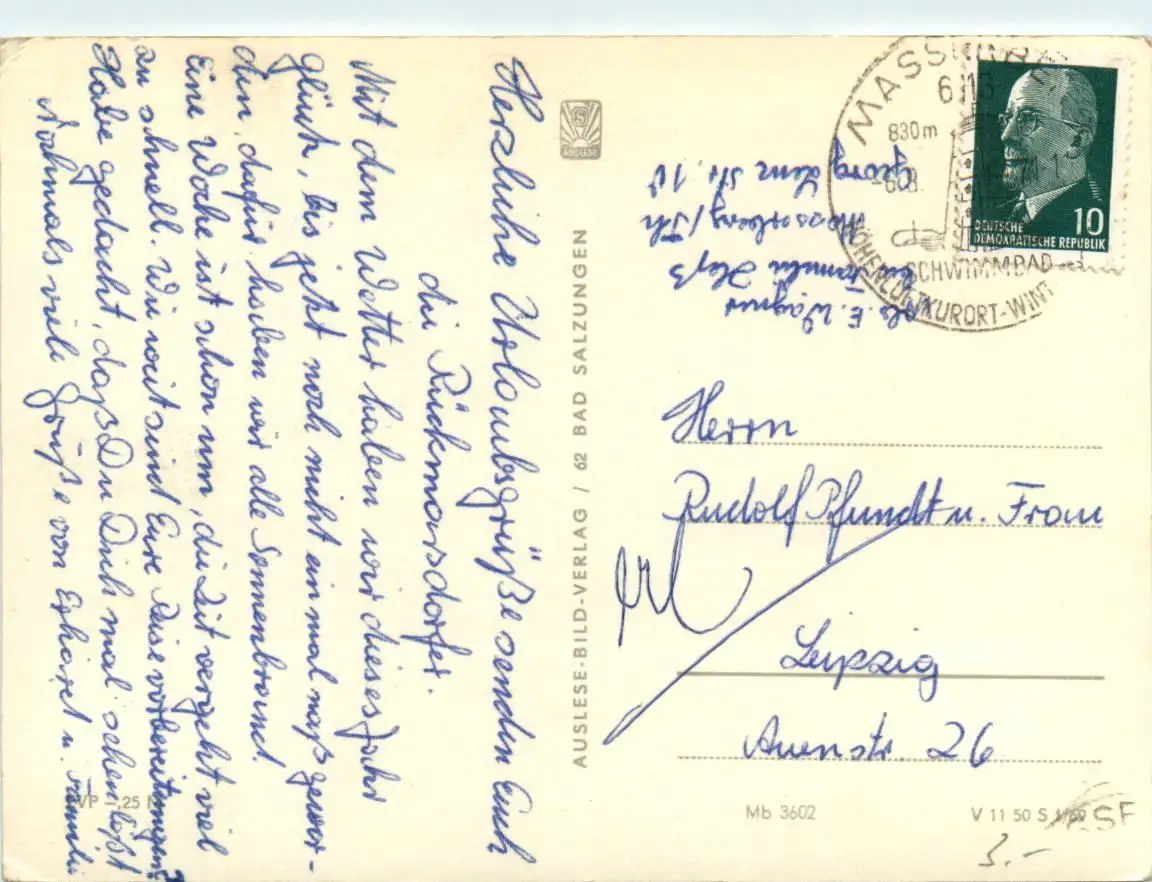 Herzliche Urlaubsgrüße senden Euch
die Rückmarsdorfer.
Mit dem Wetter haben wir dieses Jahr
Glück, bis jetzt noch nicht einmal naß gewor-
den, dafür haben wir alle Sonnenbrand.
Eine Woche ist schon um, die Zeit vergeht viel
zu schnell. Wie weit sind Eure Reisevorbereitungen?
Habe gedacht, daß Du Dich mal sehen läßt
Nochmals viele Grüße von Ephoret u. Familie
VP – ,25 M
AUSLESE-BILD-VERLAG / 62 BAD SALZUNGEN
AUSLESE
Abs. E. Wagner
bei Familie Heß
Masserberg/Th
Georg Lenz Str. 10
MASSERBERG
6113
830 m
SCHWIMMBAD
HÖHENLUFTKURORT-WINT
10
DEUTSCHE
DEMOKRATISCHE REPUBLIK
Herrn
Rudolf Pfundt u. Frau
erl
Leipzig
Auenstr. 26
Mb 3602
V 11 50 S 1/69
3.-